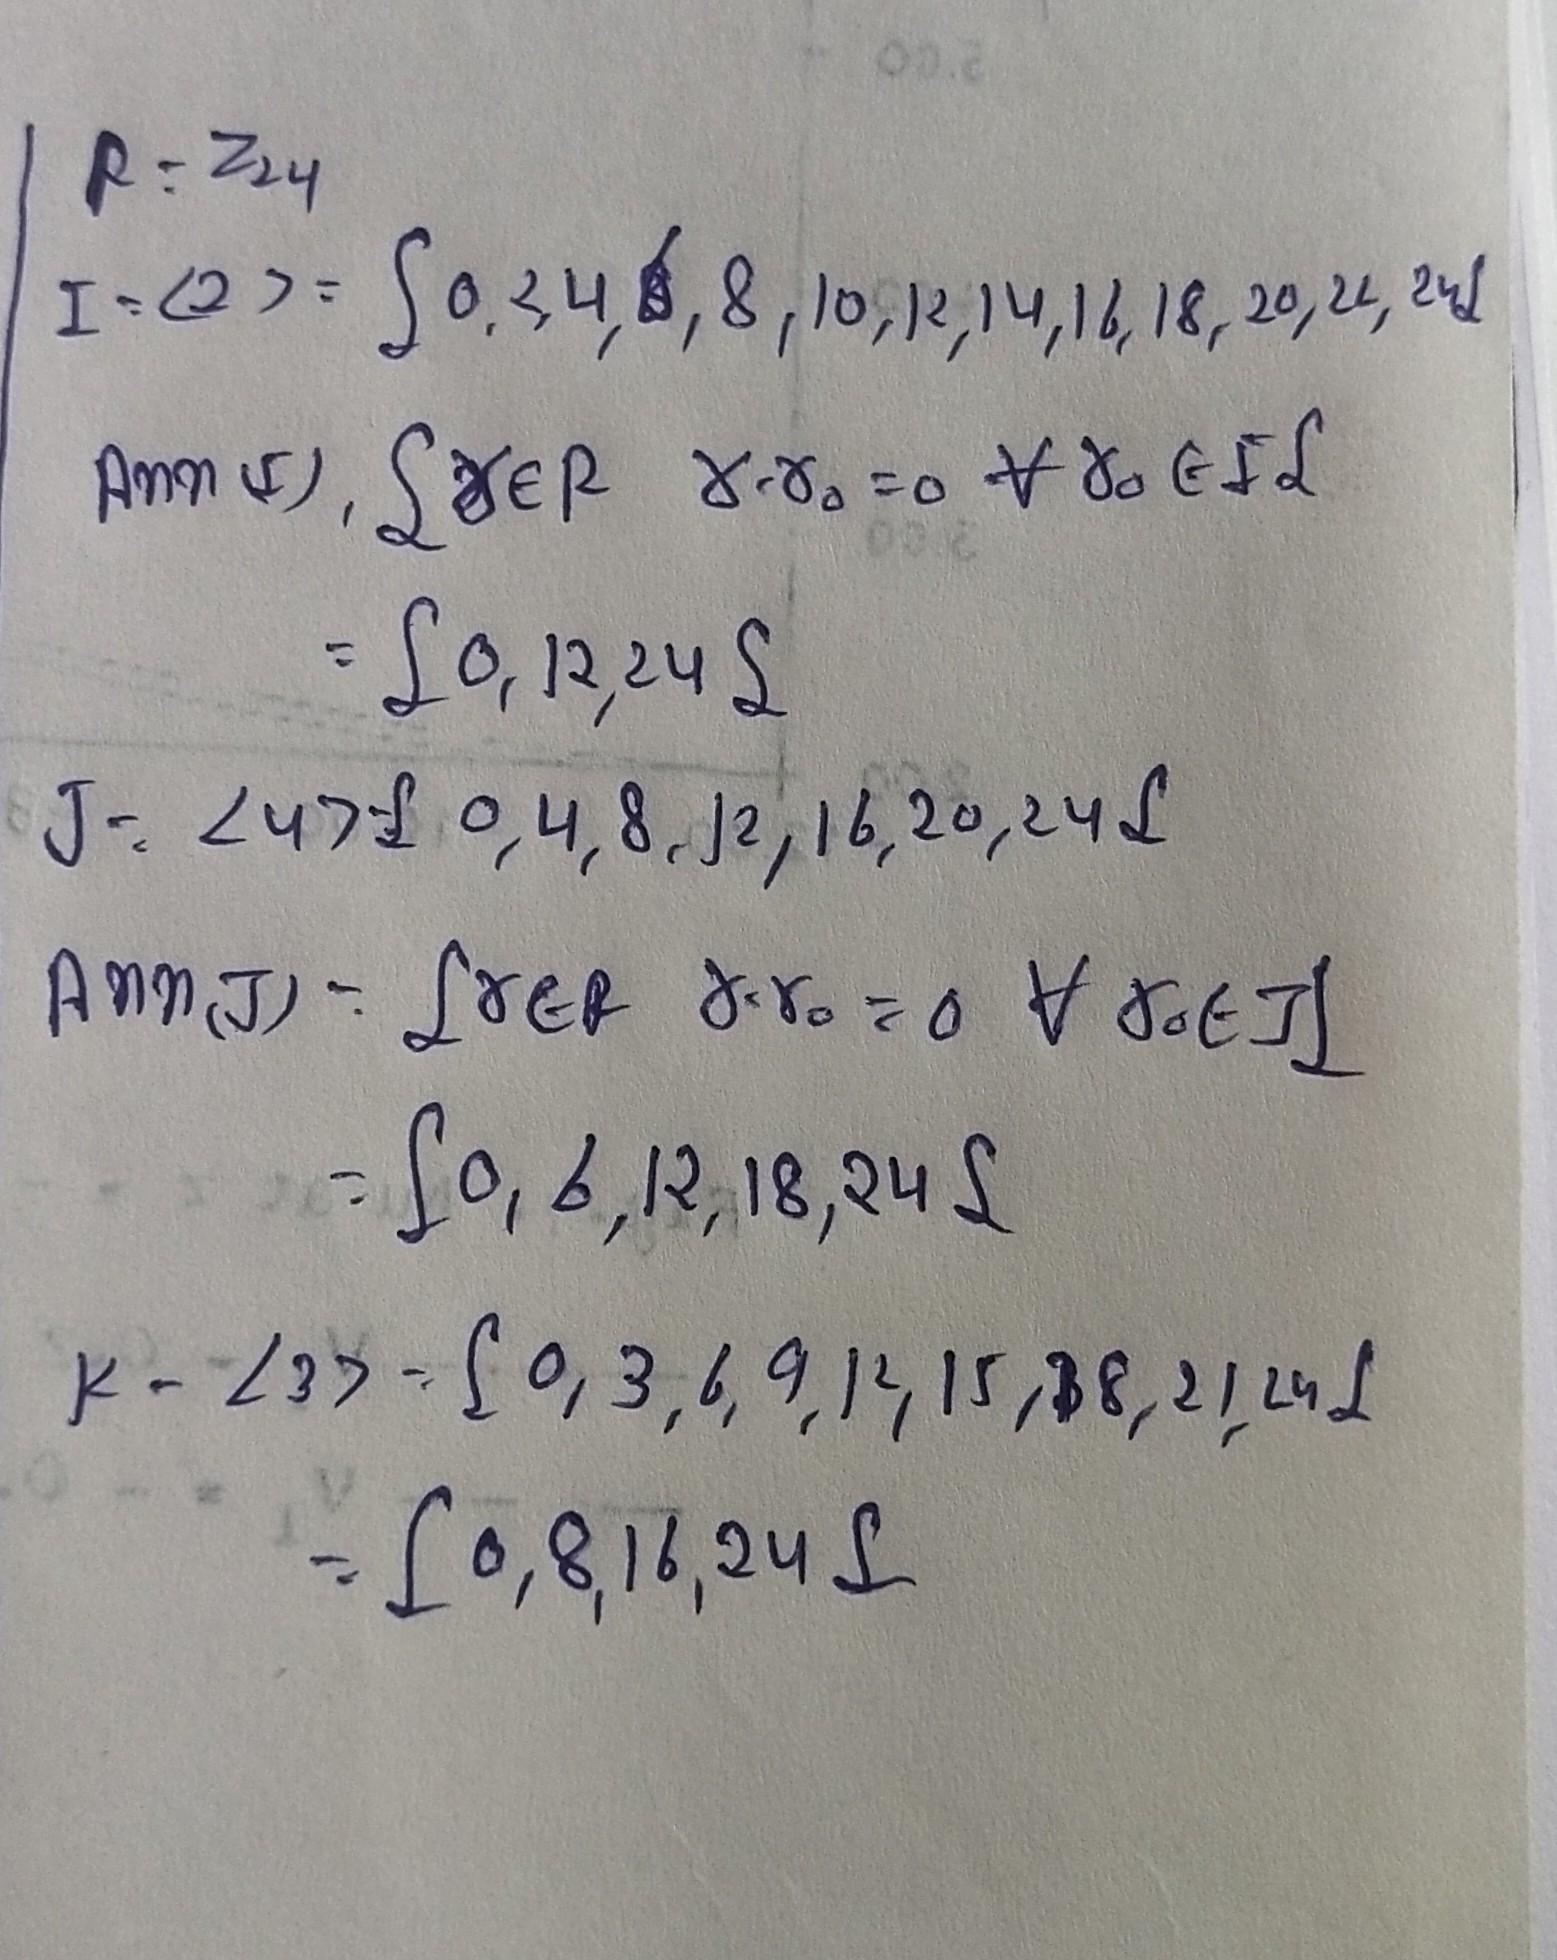 R = Z24
I = <2> = {0, 2, 4, 6, 8, 10, 12, 14, 16, 18, 20, 22, 24}
Ann(I), {r∈R r·r₀ = 0 ∀ r₀ ∈ I}
= {0, 12, 24}
J = <4> = {0, 4, 8, 12, 16, 20, 24}
Ann(J) = {r∈R r·r₀ = 0 ∀ r₀ ∈ J}
= {0, 6, 12, 18, 24}
K - <3> = {0, 3, 6, 9, 12, 15, 18, 21, 24}
= {0, 8, 16, 24}